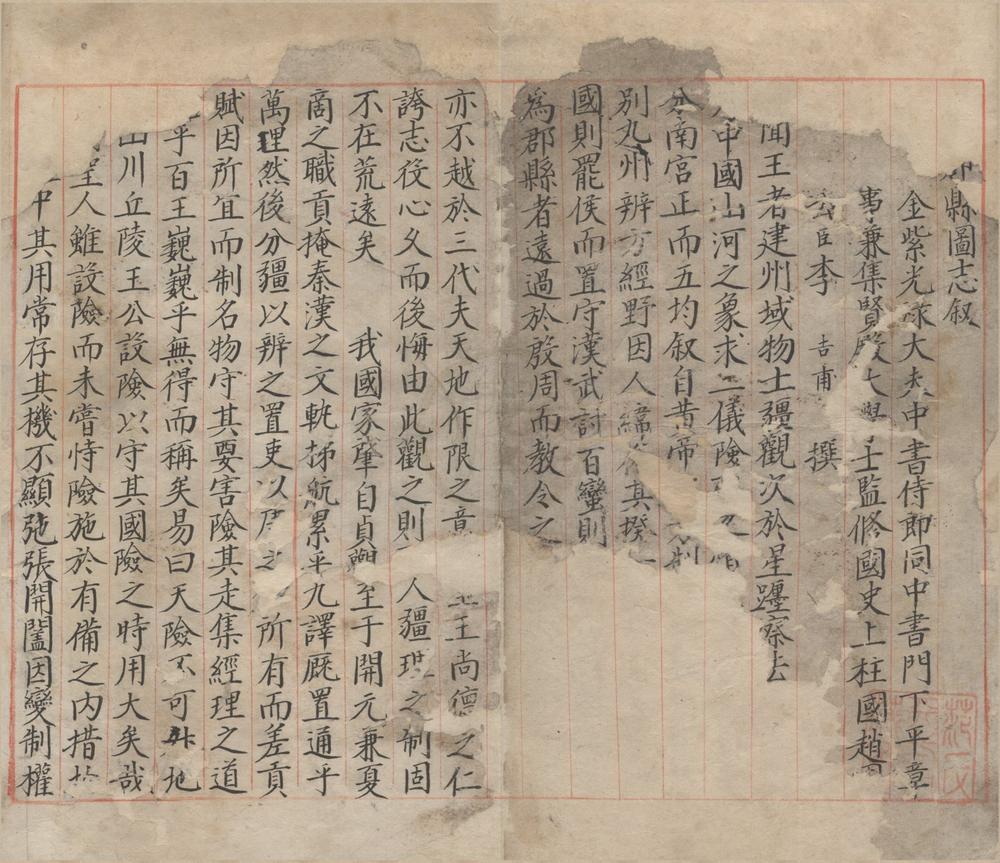 縣圖志叙
金紫光祿大夫中書侍郎同中書門下平章
事兼集賢殿大學士監修國史上柱國趙
公臣李 吉甫 撰
聞王者建州域物土疆觀次於星躔察
中國山河之象求二儀險
南宮正而五均叙自昔帝
別九州辨方經野因人締其揆一
國則罷侯而置守漢武討百蠻則
為郡縣者遠過於殷周而教令之
亦不越於三代夫天地作限之意 王尚德之仁
誇志役心久而後悔由此觀之則 人疆理之制固
不在荒遠矣 我國家肇自貞觀至于開元兼夏
商之職貢掩秦漢之文軌梯航累乎九譯廐置通乎
萬里然後分疆以辨之置吏以 所有而差貢
賦因所宜而制名物守其要害險其走集經理之道
乎百王巍巍乎無得而稱矣易曰天險不可升地
山川丘陵王公設險以守其國險之時用大矣哉
人雖設險而未嘗恃險施於有備之内措
中其用常存其機不顯弛張開闔因變制權